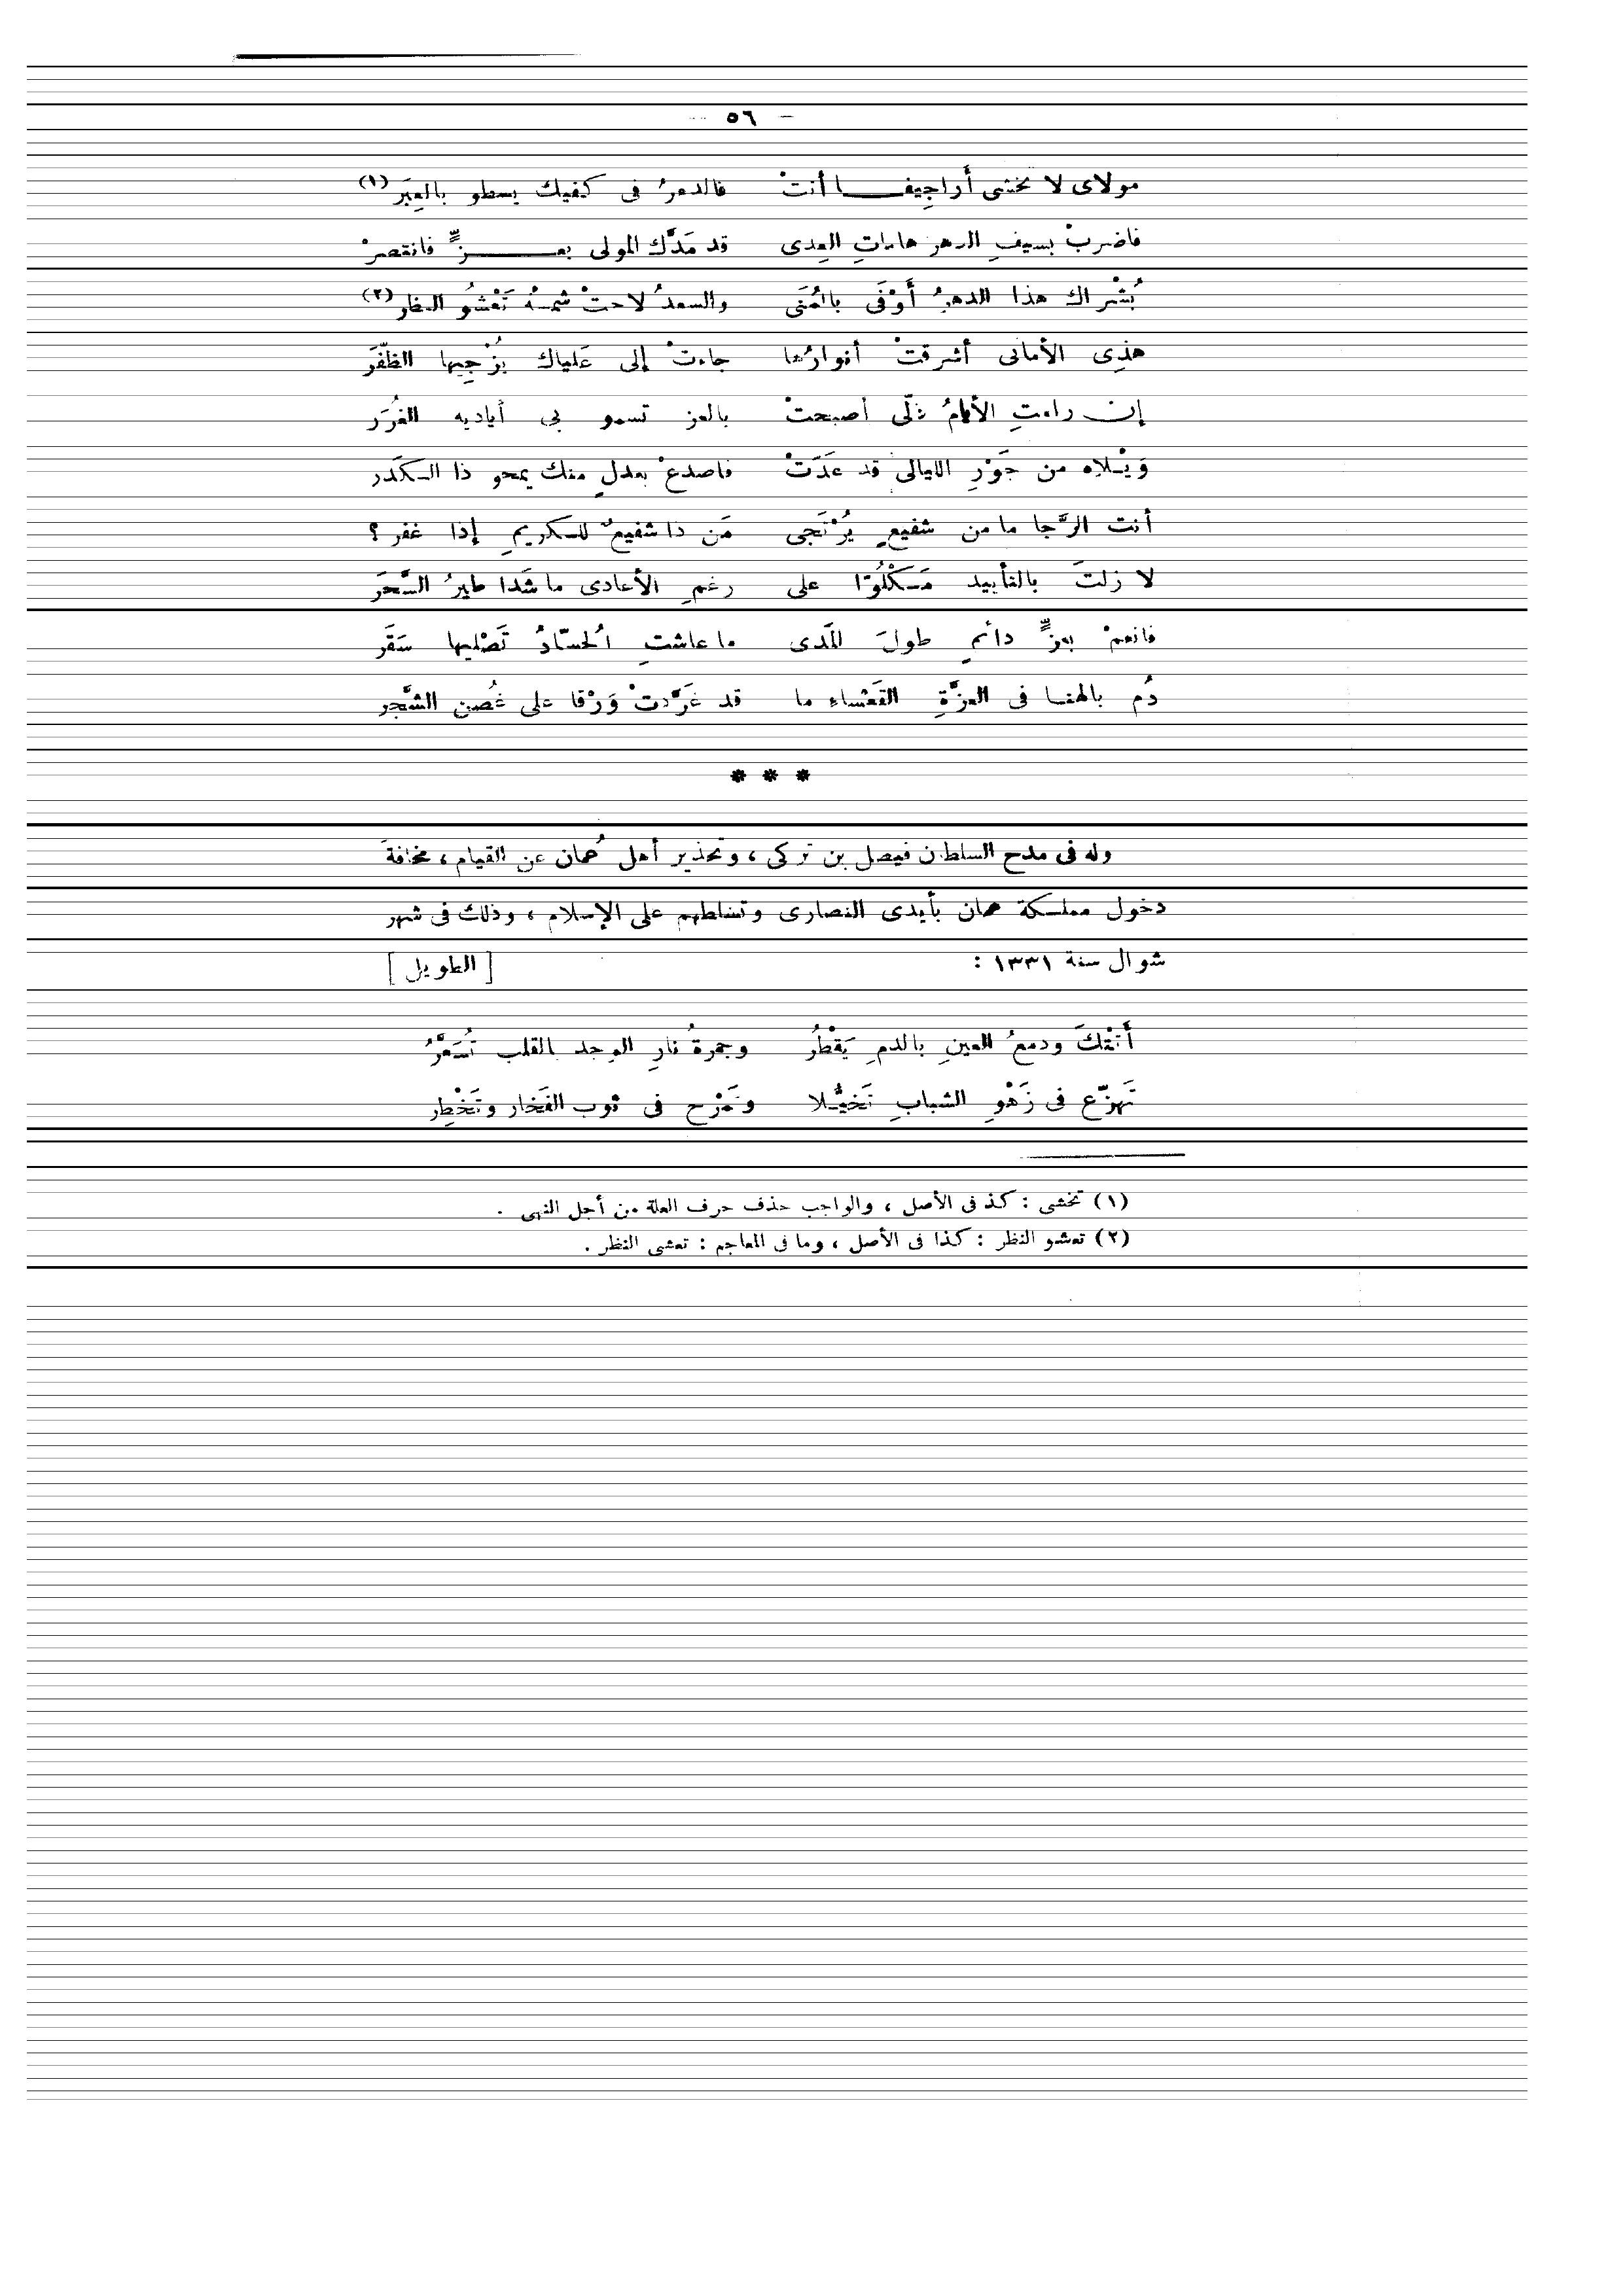 - ٥٦ -
مولاى لا تخشى أراجيفا أنتْ فالدهرُ فى كفيك يسطو بالعِبَر (١)
فاضربْ بسيفِ الدهر هاماتِ العِدى قد مَدَّك المولى بعزٍّ فانتصرْ
بُشْراك هذا الدهرُ أَوْفَى بالمُنَى والسعدُ لاحتْ شمسهُ تَعْشُو النظر (٢)
هذِى الأمانى أشرقتْ أنوارُها جاءتْ إلى عَلياك يُزْجِيها الظّفَرَ
إن راءتِ الأيامُ ذلّى أصبحتْ بالعز تسمو بى أياديه الغُرَر
وَيْلاه من جَوْرِ الليالى قد عَدَتْ فاصدعْ بعدلٍ منك يمحو ذا الكَدَر
أنت الرَّجا ما من شفيعٍ يُرْتَجَى مَن ذا شفيعٌ للكريمِ إذا غفر ؟
لا زلتَ بالتأييد مَكْلُوًّا على رغمِ الأعادى ما شَدا طيرُ السَّحَرَ
فانعمْ بعزٍّ دائمٍ طولَ المَدى ما عاشتِ الحسّادُ تَصْليها سَقَر
دُم بالهنا فى العزَّةِ القَعْساءِ ما قد غَرَّدتْ وَرْقا على غُصن الشَّجر
* * *
وله فى مدح السلطان فيصل بن تركى ، وتحذير أهل عُمان عن القيام ، مخافةَ
دخول مملكة عمان بأيدى النصارى وتسلطهم على الإسلام ، وذلك فى شهر
شوال سنة ١٣٣١ : [ الطويل ]
أَتتْكَ ودمعُ العينِ بالدمِ يَقْطُرُ وجمرةُ نارِ الوجد بالقلب تُسَعَّرُ
تَهزّع فى زَهْوِ الشبابِ تَخيُّلا وتَمْرْح فى ثوب الفَخار وتَخْطِر
(١) تخشى : كذا فى الأصل ، والواجب حذف حرف العلة من أجل النهى .
(٢) تعشو النظر : كذا فى الأصل ، وما فى المعاجم : تعشى النظر .